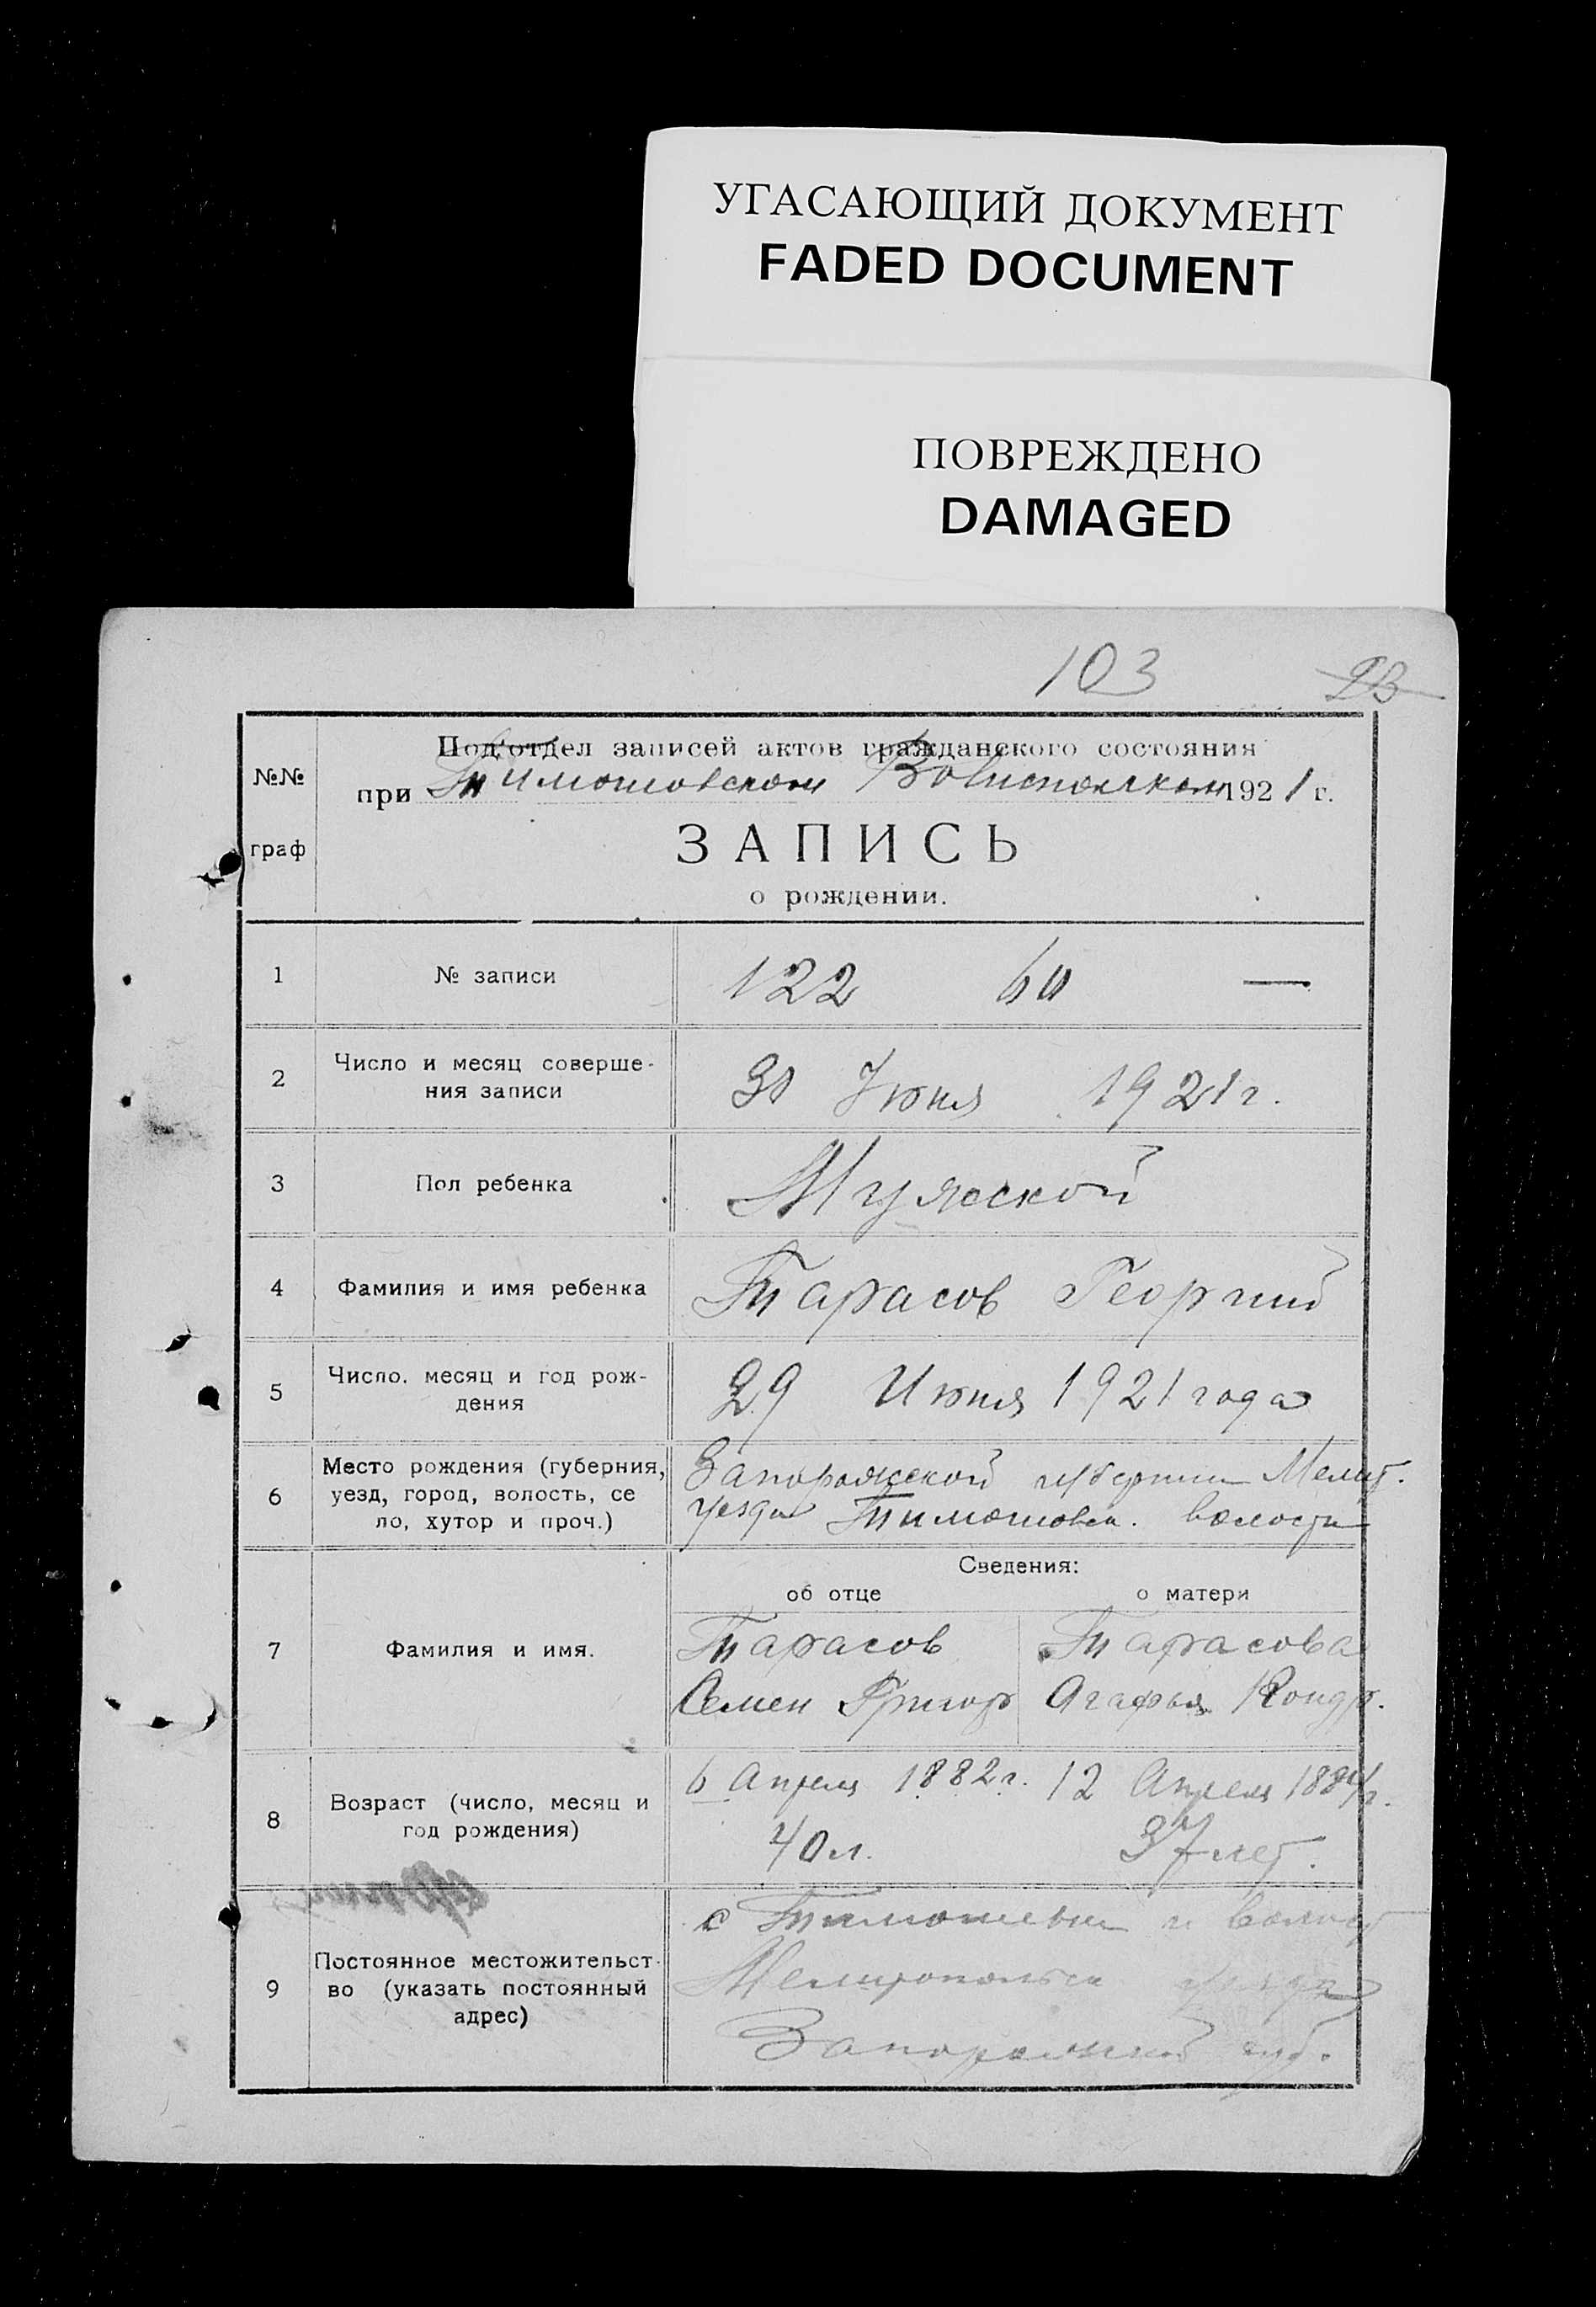 УГАСАЮЩИЙ ДОКУМЕНТ
FADED DOCUMENT
ПОВРЕЖДЕНО
DAMAGED
103 23
№№ граф
Под'отдел записей актов гражданского состояния
при Тимошовском Волисполкоме 1921 г.
ЗАПИСЬ
о рождении.
1 № записи 122 —
2 Число и месяц соверше-
ния записи
30 Июня 1921 г.
3 Пол ребенка Мужской
4 Фамилия и имя ребенка Тарасов Георгий
5 Число. месяц и год рож-
дения
29 Июня 1921 года
6 Место рождения (губерния,
уезд, город, волость, се
ло, хутор и проч.)
Запорожской губернии Мелит.
уезда Тимошовск. волости
Сведения:
об отце о матери
7 Фамилия и имя.
Тарасов Тарасова
Семен Григор Агафья Кондр.
8 Возраст (число, месяц и
год рождения)
6 Апреля 1882 г. 12 Апреля 1884 г.
40 л. 37 лет.
9 Постоянное местожительст-
во (указать постоянный
адрес)
с Тимошевки и волост
Мелитопольск уезда
Запорожской губ.